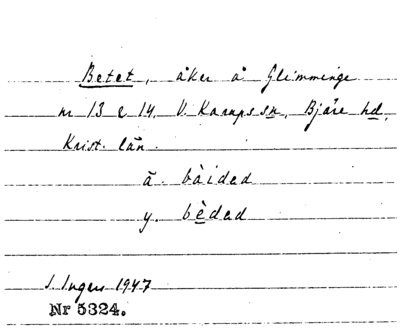 Betet, åker å Glimminge
nr 13 & 14, V. Karups sn, Bjäre hd,
Krist. län.
ä. bàidad
y. bèdad
I. Ingers 1947
Nr 5324.